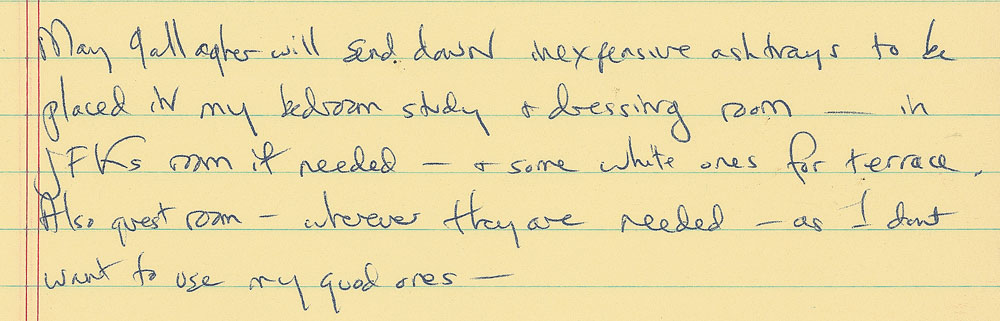 Mary Gallagher will send down inexpensive ashtrays to be
placed in my bedroom study + dressing room — in
JFKs room if needed — + some white ones for terrace.
Also guest room — wherever they are needed — as I dont
want to use my good ones —